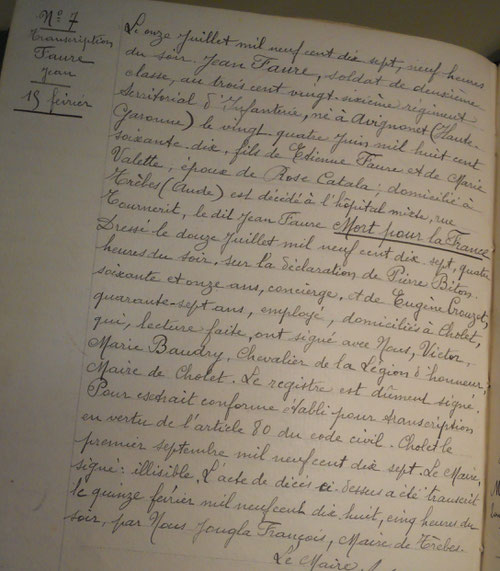 Nº 7
Transcription
Faure
Jean
15 février
Le onze Juillet mil neuf cent dix sept, neuf heures
du soir, Jean Faure, soldat de deuxième
classe, au trois cent vingt sixième régiment
territorial d'Infanterie, né à Avignonet (Haute-
Garonne) le vingt quatre juin mil huit cent
soixante-dix, fils de Etienne Faure et de Marie
Valette, époux de Rose Catala; domicilié à
Trèbes (Aude) est décédé à l'hôpital mixte, rue
Tournerit, le dit Jean Faure Mort pour la France
Dressé le douze Juillet mil neuf cent dix sept, quatre
heures du soir, sur la déclaration de Pierre Biton
soixante et onze ans, concierge, et de Eugène Crouzet,
quarante-sept ans, employé, domiciliés à Cholet,
qui, lecture faite, ont signé avec Nous, Victor,
Marie Baudry, Chevalier de la Légion d'honneur
Maire de Cholet. Le registre est dûment signé.
Pour extrait conforme établi pour transcription
en vertu de l'article 80 du code civil. Cholet le
premier septembre mil neuf cent dix sept. Le Maire,
signé: illisible. L'acte de décès ci-dessus a été transcrit
le quinze février mil neuf cent dix huit, cinq heures du
soir, par Nous Jougla François, Maire de Trèbes.
Le Maire,